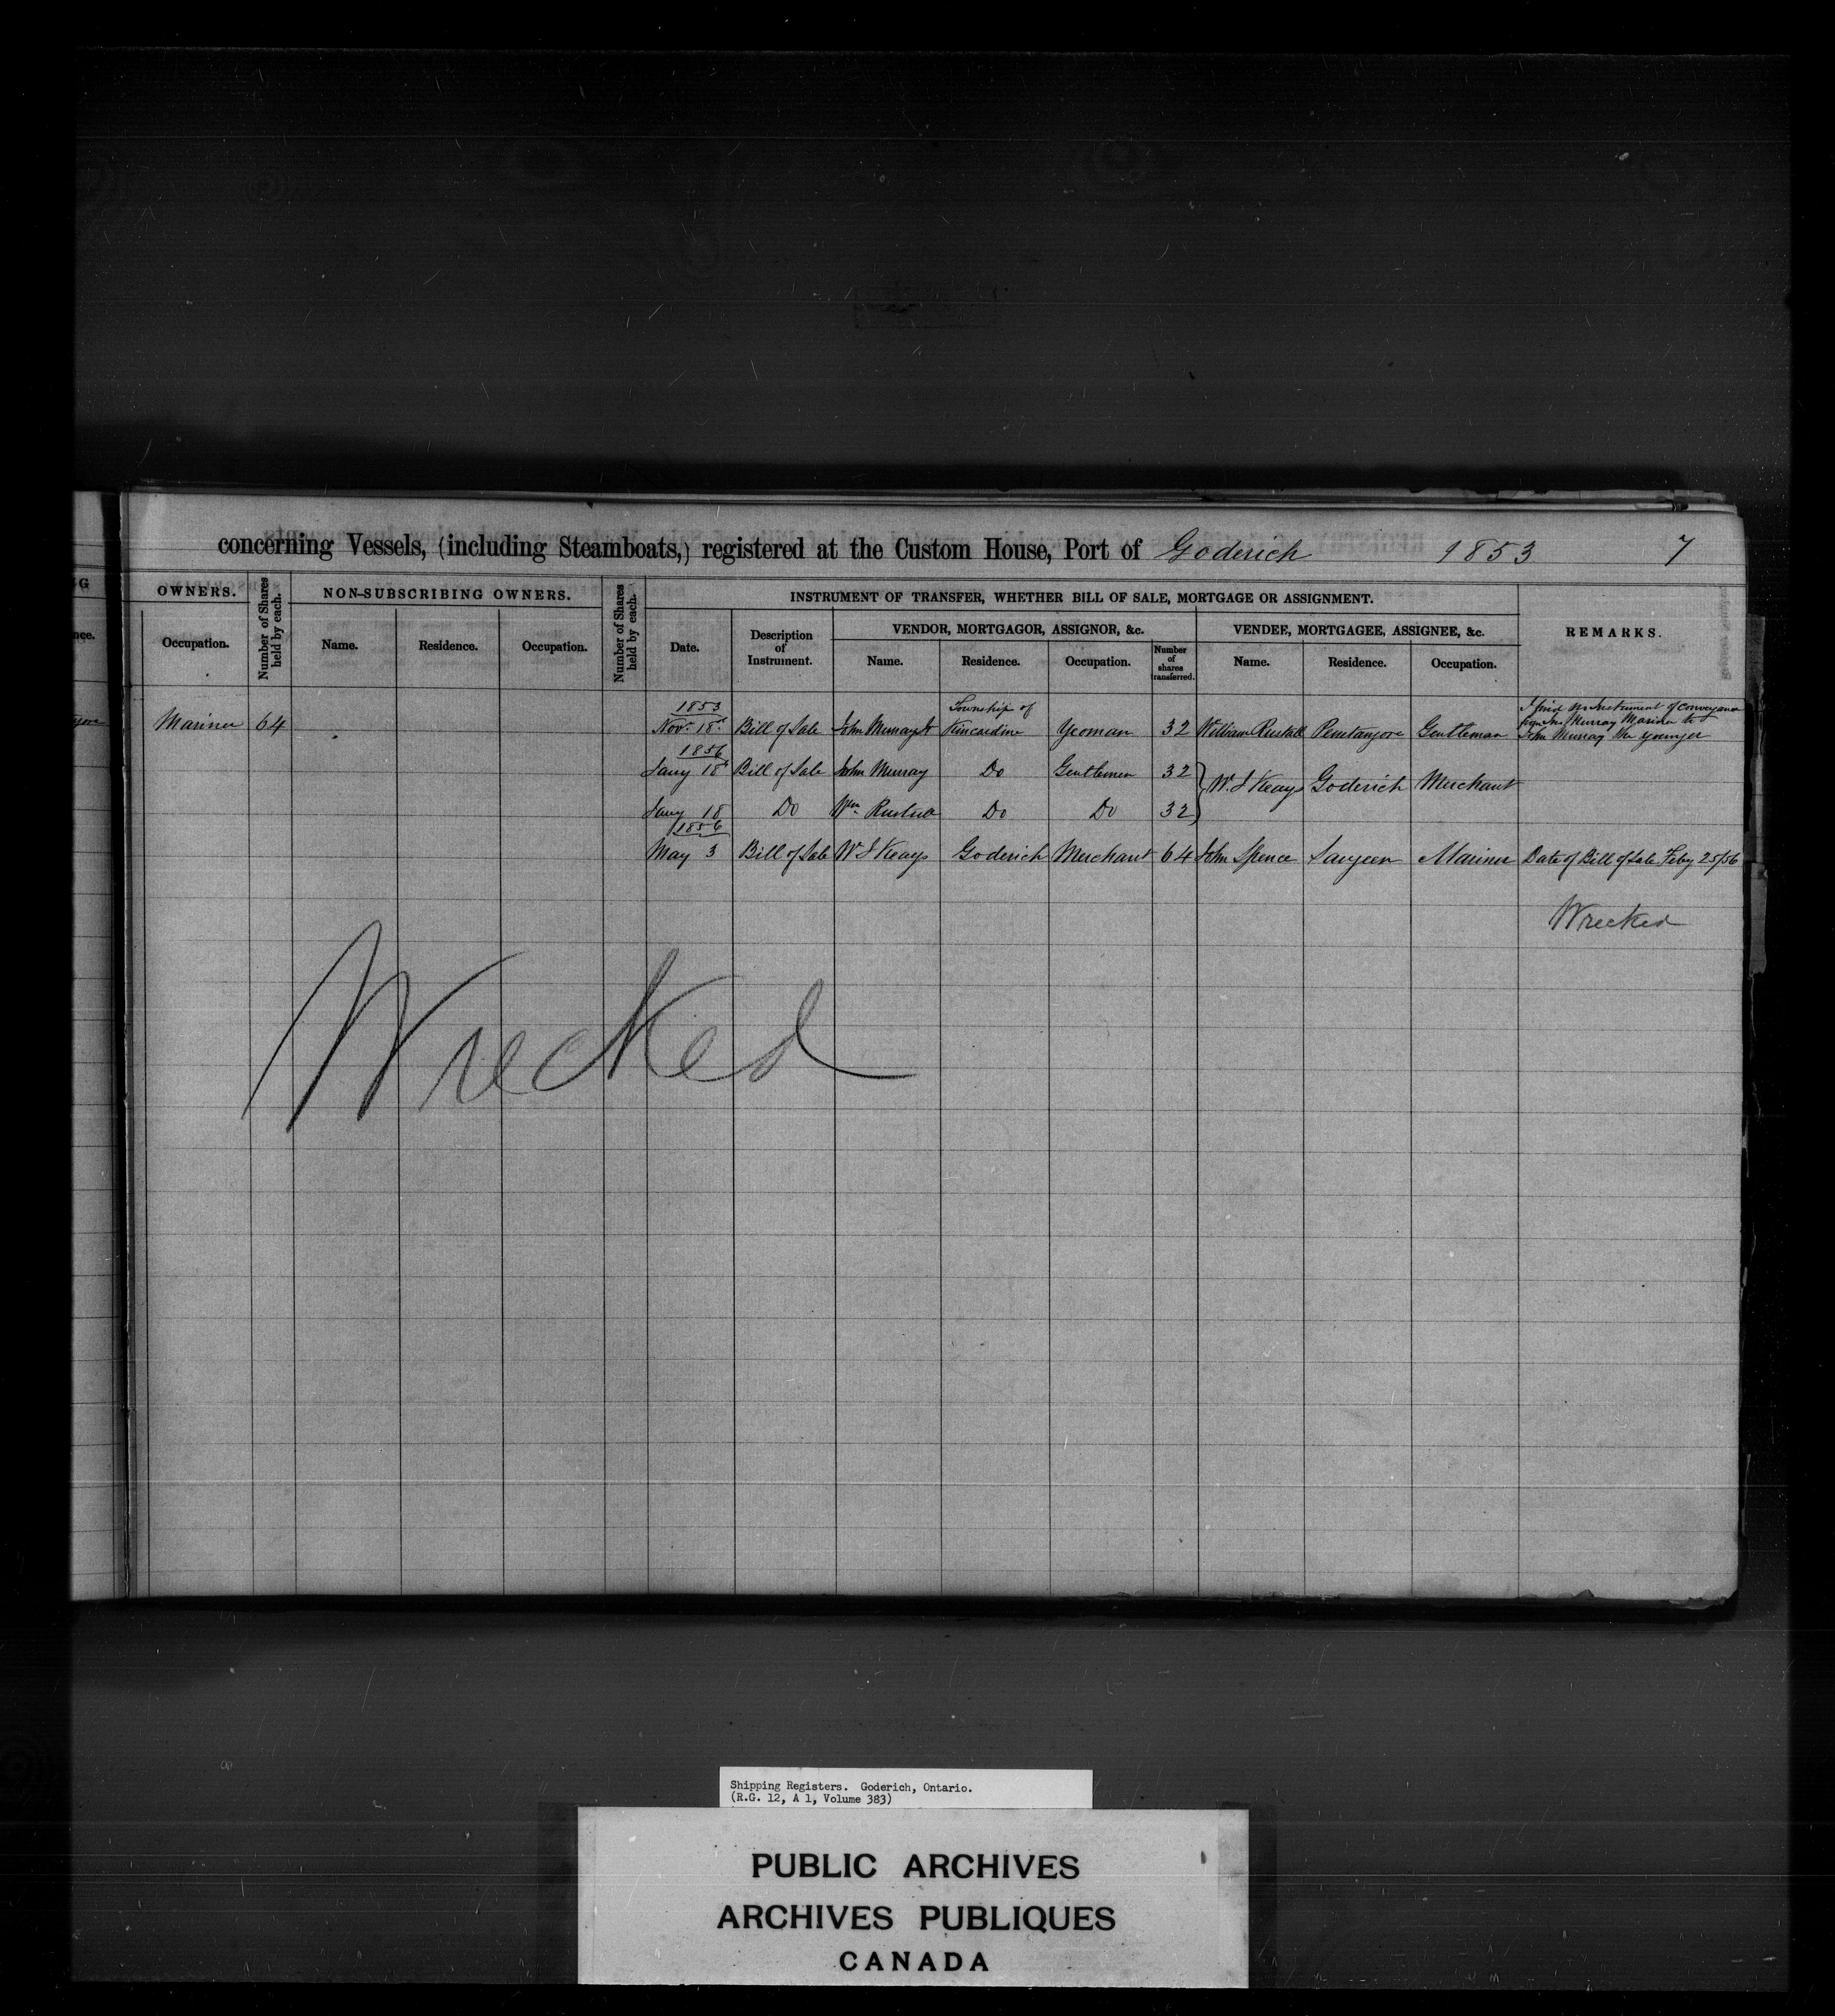 concerning Vessels, (including Steamboats,) registered at the Custom House, Port of Goderich 1853 7
OWNERS.
Occupation.
Number of Shares held by each.
NON-SUBSCRIBING OWNERS.
Name. Residence. Occupation.
Number of Shares held by each.
INSTRUMENT OF TRANSFER, WHETHER BILL OF SALE, MORTGAGE OR ASSIGNMENT.
Date.
Description of Instrument.
VENDOR, MORTGAGOR, ASSIGNOR, &c.
Name. Residence. Occupation. Number of shares transferred.
VENDEE, MORTGAGEE, ASSIGNEE, &c.
Name. Residence. Occupation.
REMARKS.
1853 Township of
Mariner 64 Nov. 18 Bill of Sale John Murray Kincardine Yeoman 32 William Rastall Penetangore Gentleman
I find no Instrument of conveyance
from Jno. Murray Mariner to
John Murray the younger
1856
Jany 18 Bill of Sale John Murray Do Gentleman 32
W. J Keays Goderich Merchant
Jany 18 Do Wm Do Do 32
1856
May 3 Bill of Sale W J Keays Goderich Merchant 64 John Spence Saugeen Mariner Date of Bill of Sale Feby 25/56
Wrecked
Wrecked
Shipping Registers. Goderich, Ontario.
(R.G. 12, A 1, Volume 383)
PUBLIC ARCHIVES
ARCHIVES PUBLIQUES
CANADA